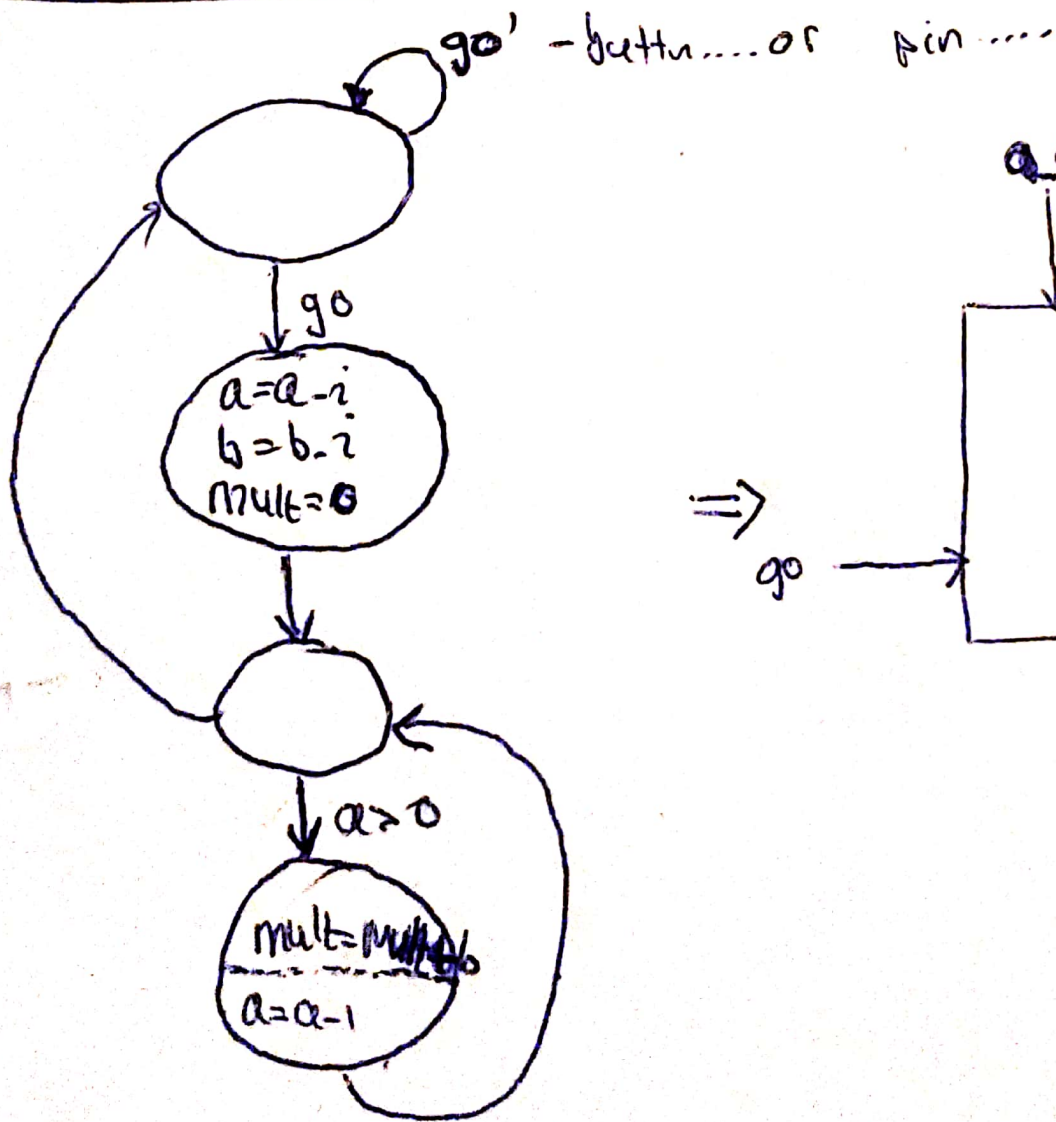 go' - buttn.....or pin.....
go
a=a-i
b=b-i
mult=0
go
a>0
mult=mult+b
a=a-1